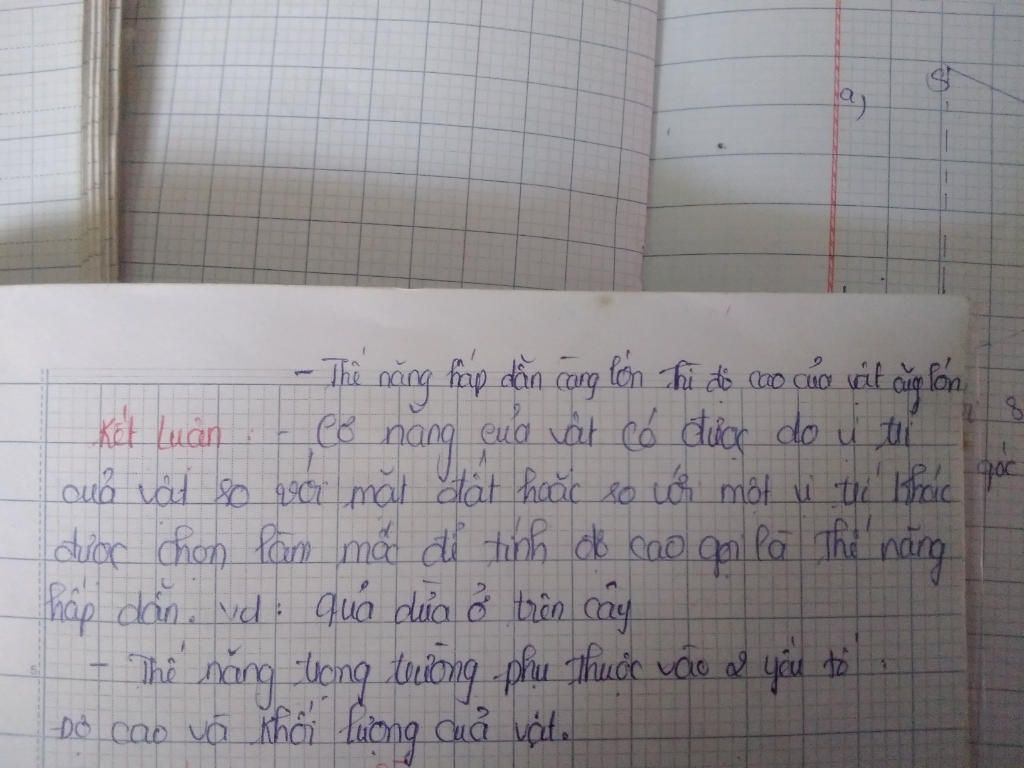 a,
S
- Thế năng hấp dẫn càng lớn thì độ cao của vật cũng lớn
8
Kết luận: - Cơ năng của vật có được do vị trí
góc
của vật so với mặt đất hoặc so với một vị trí khác
được chọn làm mốc để tính độ cao gọi là thế năng
hấp dẫn. vd: quả dừa ở trên cây
- Thế năng trọng trường phụ thuộc vào 2 yếu tố:
Độ cao và khối lượng của vật.